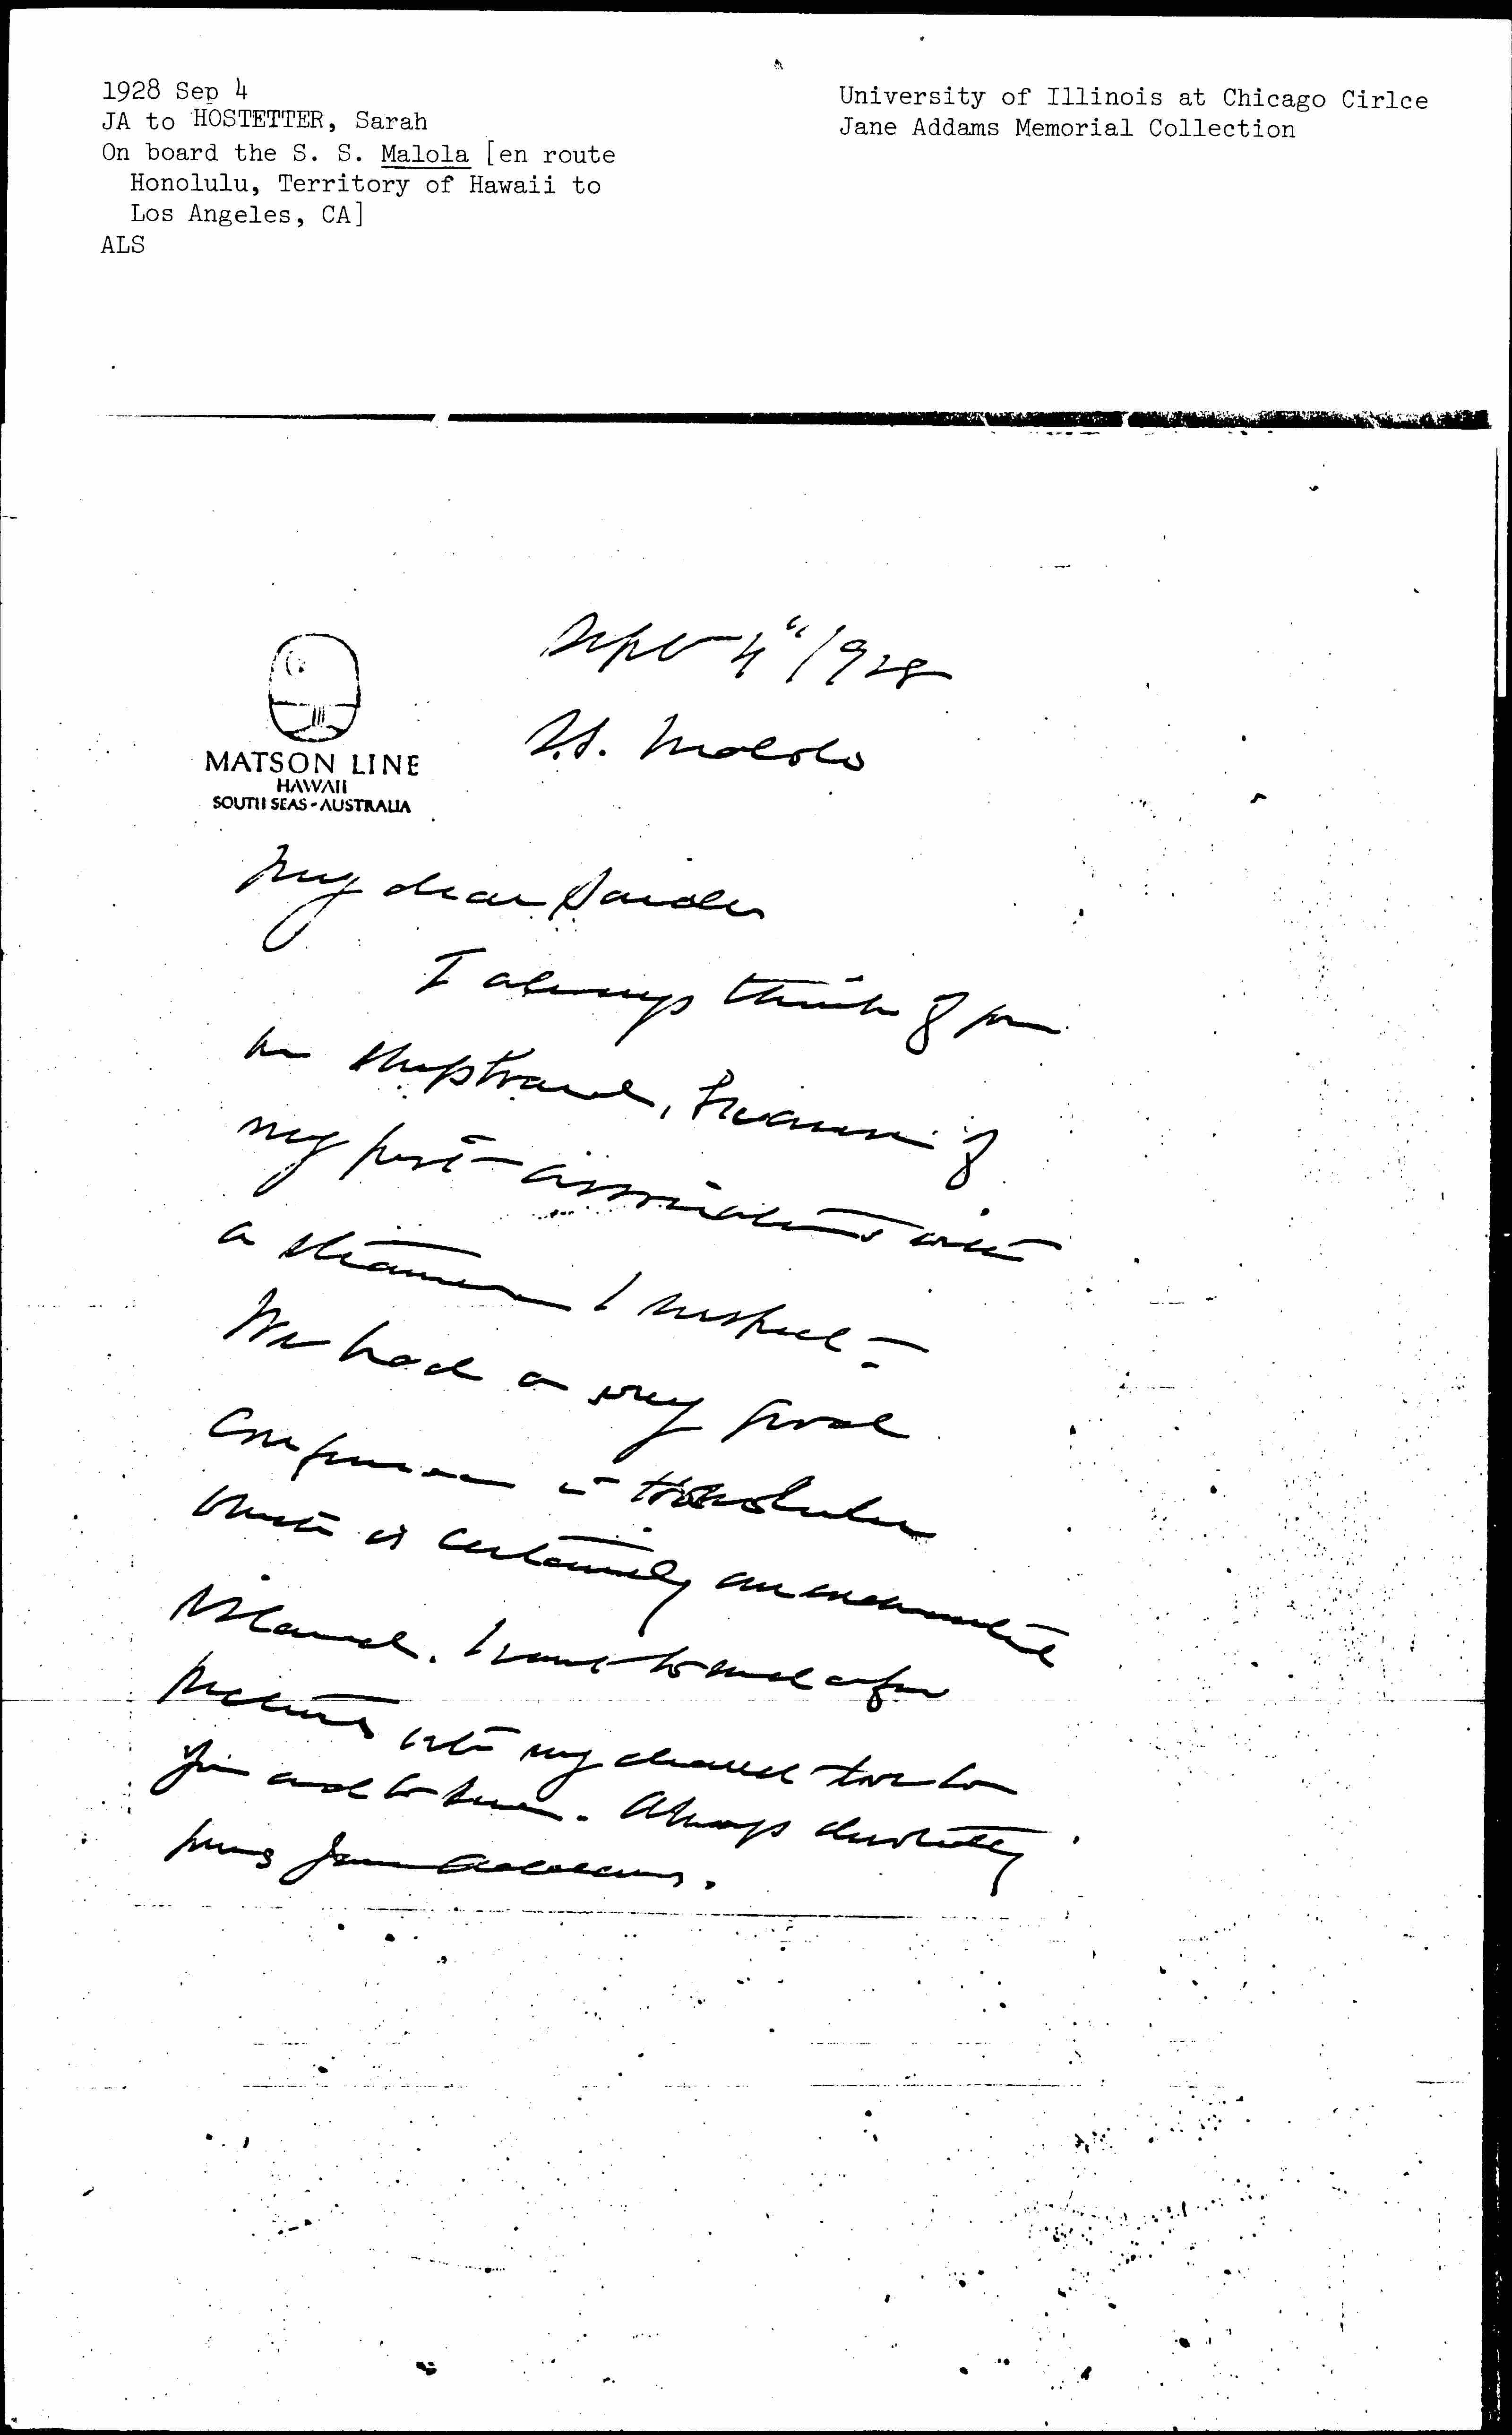 1928 Sep 4
JA to HOSTETTER, Sarah
On board the S. S. Malola [en route
Honolulu, Territory of Hawaii to
Los Angeles, CA]
ALS
University of Illinois at Chicago Cirlce
Jane Addams Memorial Collection
Sept 4" 1928
S.S. Malolo
MATSON LINE
HAWAII
SOUTH SEAS - AUSTRALIA
My dear Sadie
I always think of you
on shiptravel, because of
my first associations with
a steamer I suspect -
We had a very good
Conference in Honolulu
which is certainly an enchanted
island. I want to send a few
pictures with my dearest love to
you and to
Always devotedly
yours Jane Addams.